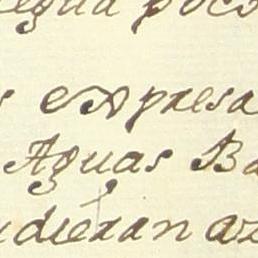 egua poco
s expresa
Aguas Ba
udieran az